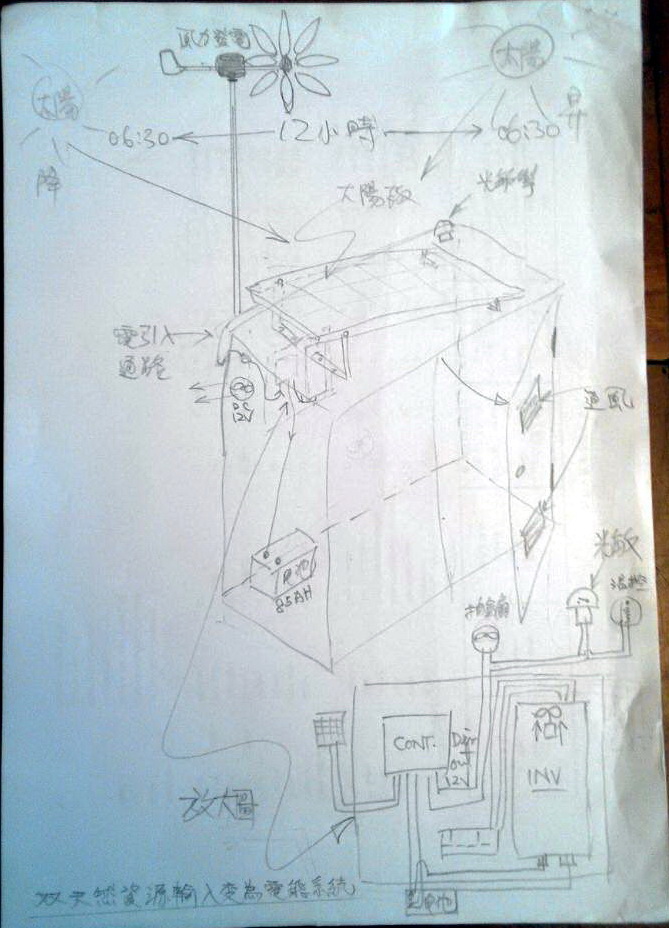 風力發電
太陽
太陽
06:30
12小時
06:30
昇
降
太陽板
電引入
通路
DC
12V
通風
电池
85AH
光敏
温控
抽風扇
CONT.
12V
INV
放大圖
电池
双天然資源輸入变為電能系統